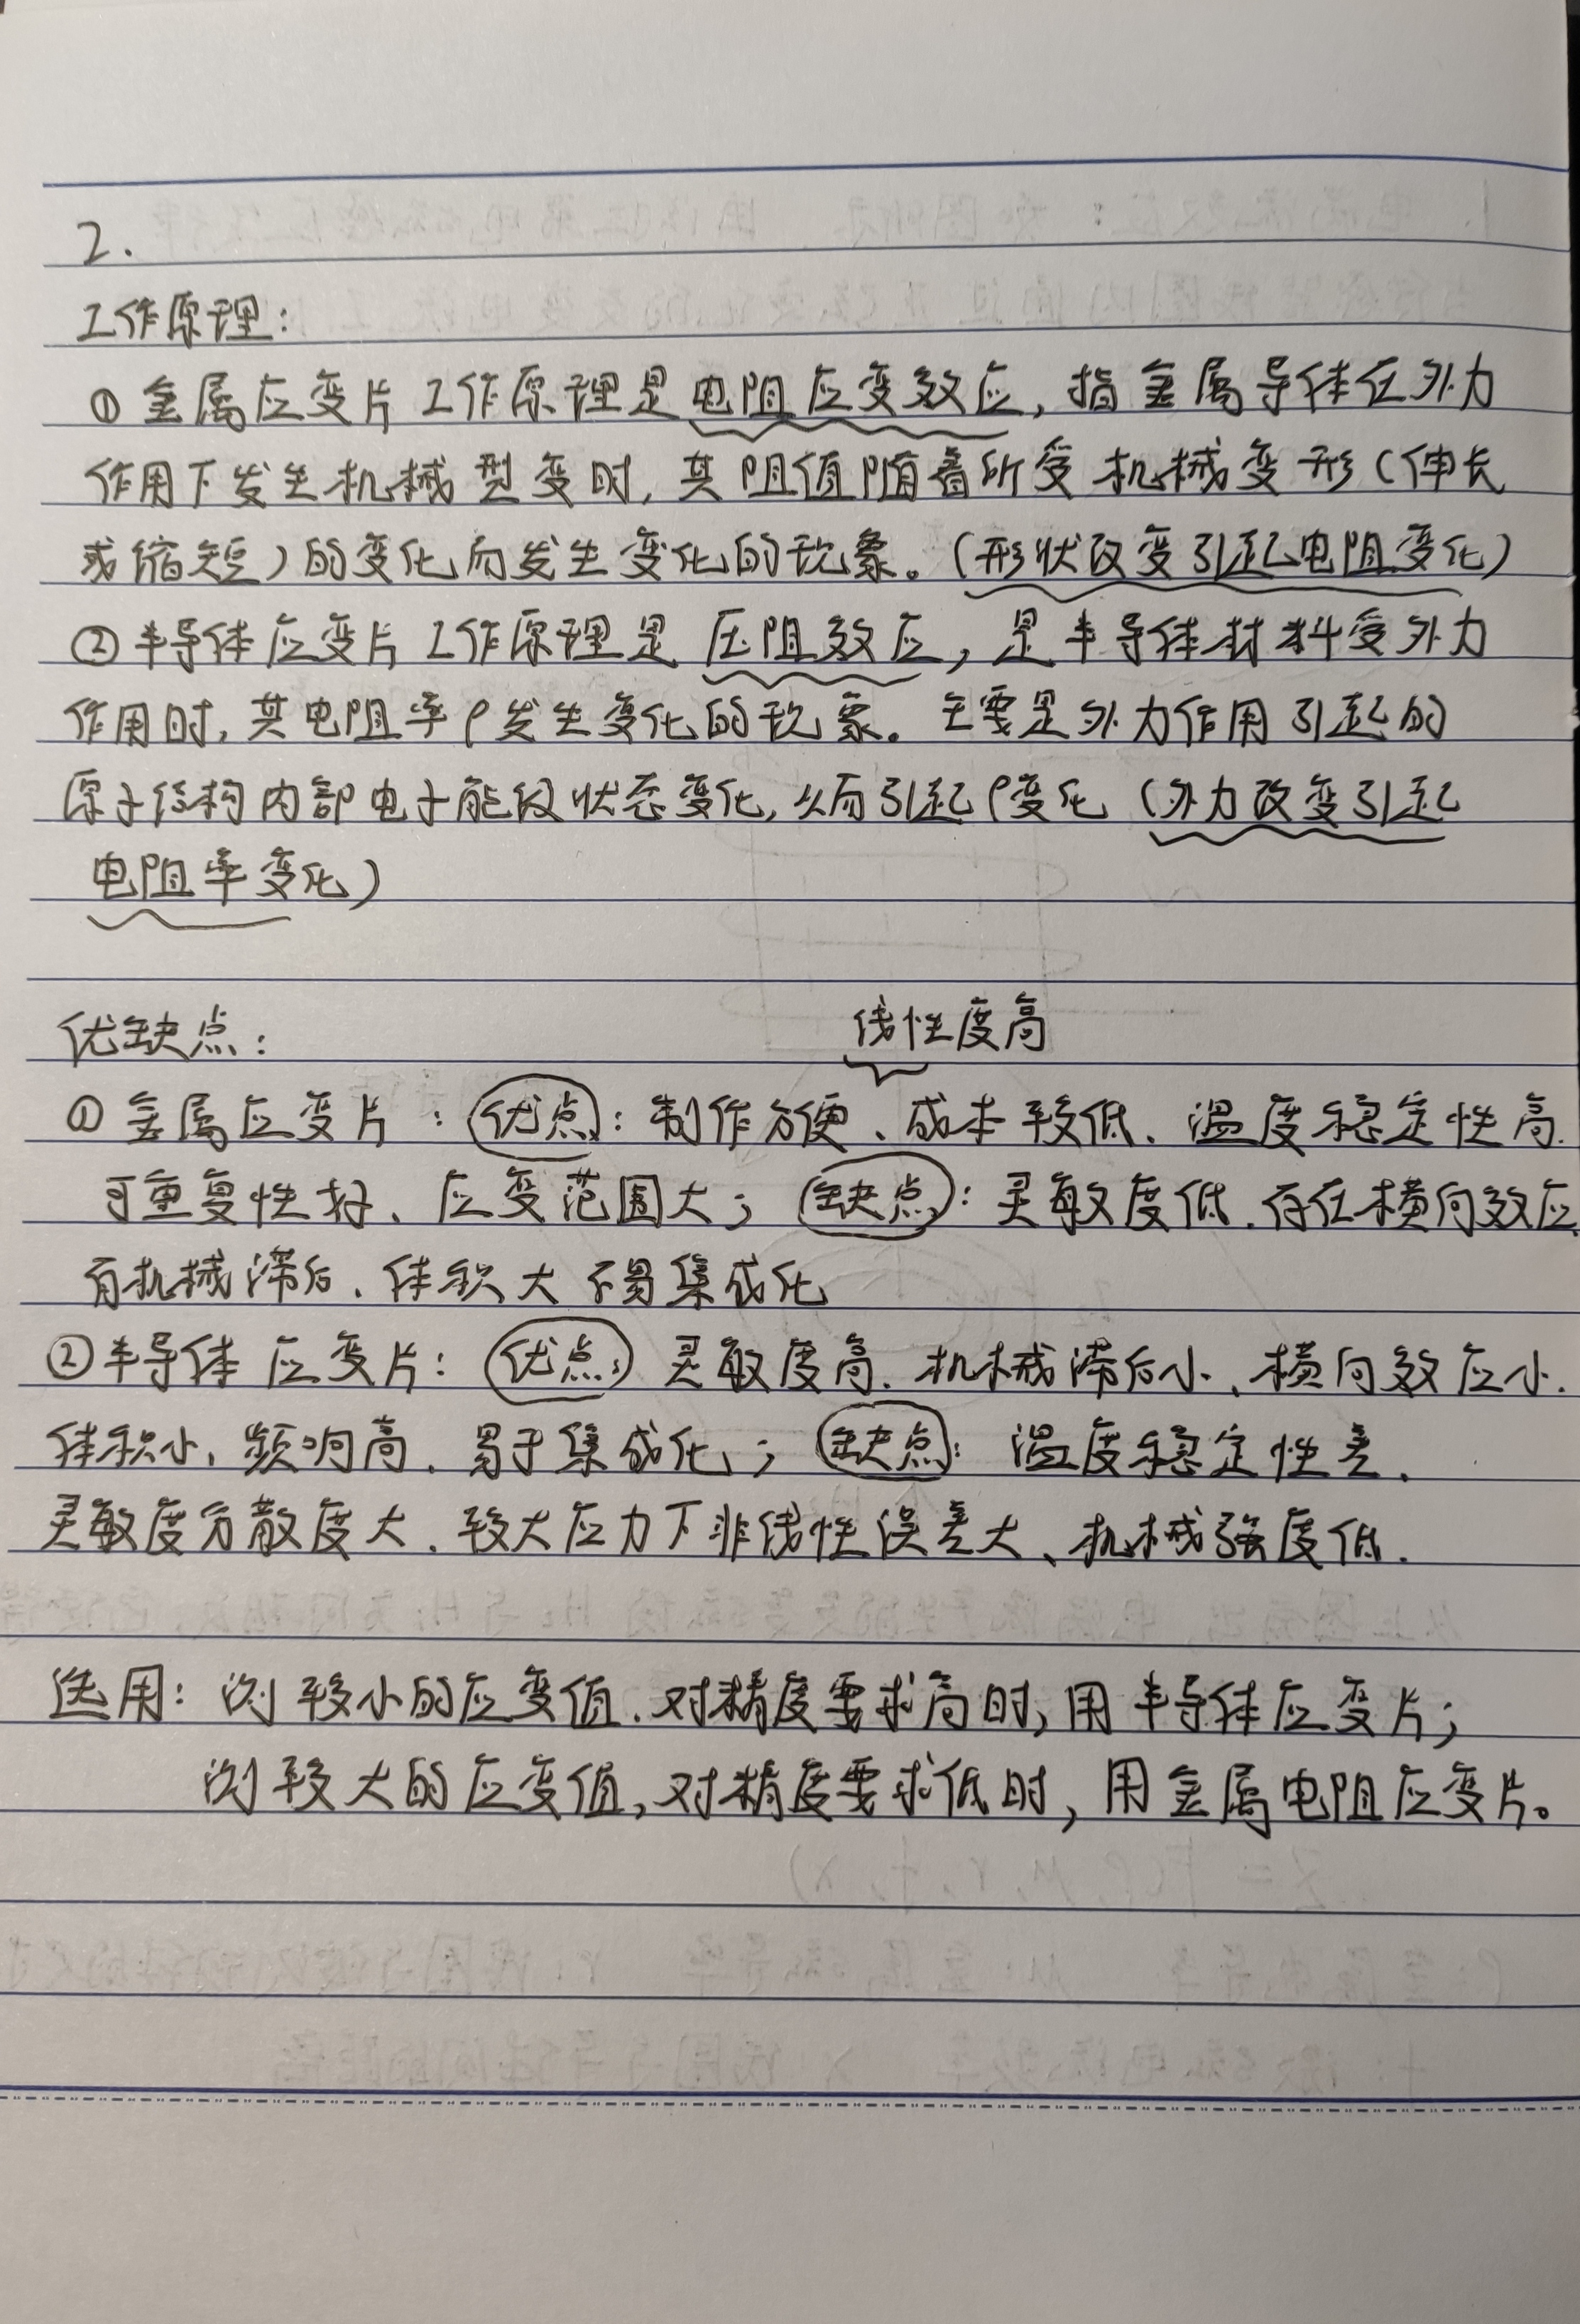 2.
工作原理:
① 金属应变片 工作原理是电阻应变效应, 指金属导体在外力
作用下发生机械型变时, 其阻值随着所受机械变形(伸长
或缩短)的变化而发生变化的现象。(形状改变引起电阻变化)
② 半导体应变片 工作原理是 压阻效应, 是半导体材料受外力
作用时, 其电阻率ρ发生变化的现象。主要是外力作用引起的
原子结构内部电子能级状态变化, 从而引起ρ变化 (外力改变引起
电阻率变化)
优缺点:
线性度高
① 金属应变片: 优点: 制作方便、成本较低、温度稳定性高、
可重复性好、应变范围大; 缺点: 灵敏度低、存在横向效应
有机械滞后、体积大 不易集成化
② 半导体 应变片: 优点: 灵敏度高、机械滞后小、横向效应小、
体积小、频响高、易于集成化; 缺点: 温度稳定性差、
灵敏度分散度大、较大应力下非线性误差大、机械强度低.
选用: 测较小的应变值、对精度要求高时, 用半导体应变片;
测较大的应变值, 对精度要求低时, 用金属电阻应变片。